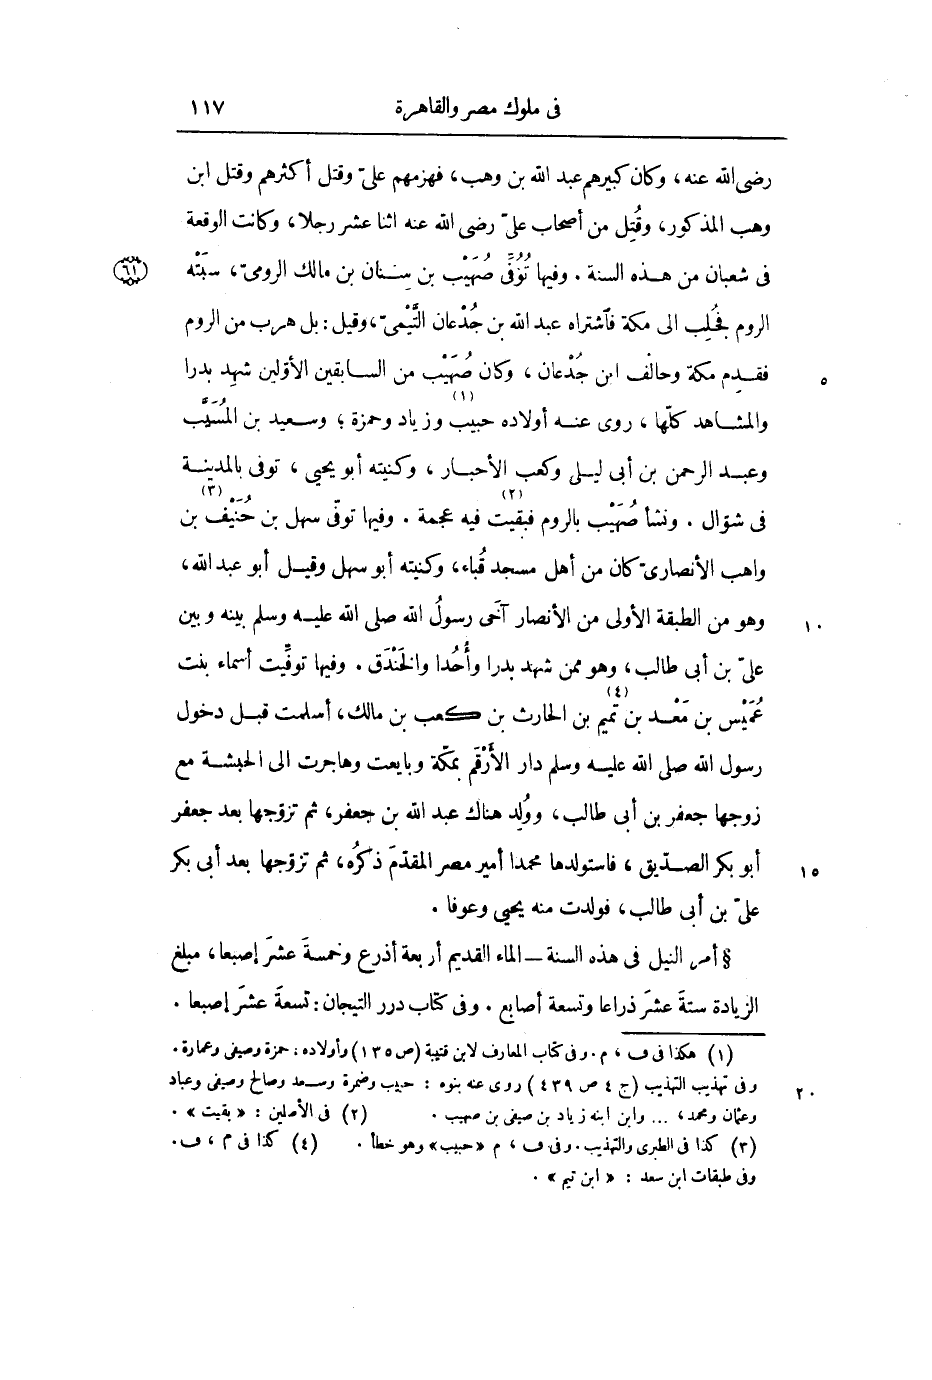 فى ملوك مصر والقاهرة ١١٧
رضى الله عنه، وكان كبيرهم عبد الله بن وهب، فهزمهم علىّ وقتل أكثرهم وقتل ابن
وهب المذكور، وقُتِل من أصحاب علىّ رضى الله عنه اثنا عشر رجلا، وكانت الوقعة
فى شعبان من هذه السنة . وفيها تُوُفِّى صُهَيْب بن سِنان بن مالك الرومىّ، سَبَتْه
٦١
الروم فجُلِب الى مكة فآشتراه عبد الله بن جُدْعان التَّيْمىّ، وقيل: بل هرب من الروم
فقدِم مكة وحالف ابن جُدْعان ، وكان صُهَيْب من السابقين الأوّلين شهِد بدرا ٥
والمشاهد كلّها ، روى عنه أولاده حبيب وزياد وحمزة (١) ؛ وسعيد بن المُسَيَّب
وعبد الرحمن بن أبى ليلى وكعب الأحبار ، وكنيته أبو يحيى ، توفى بالمدينة
فى شوّال . ونشأ صُهَيْب بالروم فبقيت (٢) فيه عجمة . وفيها توفّى سهل بن حُنَيْف (٣) بن
واهب الأنصارىّ كان من أهل مسجد قُباء، وكنيته أبو سهل وقيل أبو عبد الله،
وهو من الطبقة الأولى من الأنصار آخَى رسولُ الله صلى الله عليه وسلم بينه وبين ١٠
علىّ بن أبى طالب، وهو ممن شهد بدرا وأُحُدا والخَنْدَق . وفيها توفِّيت أسماء بنت
عُمَيْس بن مَعْد بن تميم (٤) بن الحارث بن كعب بن مالك، أسلمت قبل دخول
رسول الله صلى الله عليه وسلم دار الأَرْقَم بمكّة وبايعت وهاجرت الى الحبشة مع
زوجها جعفر بن أبى طالب، ووُلِد هناك عبد الله بن جعفر، ثم تزوّجها بعد جعفر
أبو بكر الصدّيق ، فاستولدها محمدا أمير مصر المقدّمَ ذكرُه، ثم تزوّجها بعد أبى بكر ١٥
علىّ بن أبى طالب، فولدت منه يحيى وعوفا .
§ أمر النيل فى هذه السنة — الماء القديم أربعة أذرع وخمسةَ عشَرَ إصبعا، مبلغ
الزيادة ستةَ عشَرَ ذراعا وتسعة أصابع . وفى كتاب درر التيجان: تسعةَ عشَرَ إصبعا .
(١) هكذا فى ف ، م . وفى كتاب المعارف لابن قتيبة (ص ١٣٥) وأولاده: حمزة وصيفى وعمارة .
وفى تهذيب التهذيب (ج ٤ ص ٤٣٩) روى عنه بنوه : حبيب وضمرة وسعد وصالح وصيفى وعباد ٢٠
وعثمان ومحمد، ... وابن ابنه زياد بن صيفى بن صهيب . (٢) فى الأصلين : « بقيت » .
(٣) كذا فى الطبرى والتهذيب . وفى ف ، م «حبيب» وهو خطأ . (٤) كذا فى م ، ف .
وفى طبقات ابن سعد : « ابن تيم » .